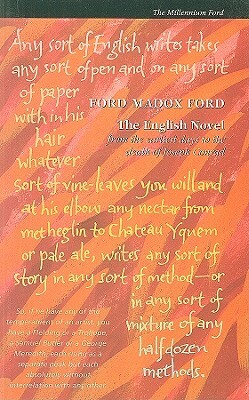 The Millennium Ford
Any sort of English writes takes
any sort of pen and on any sort
of paper
with in his
hair
whatever
FORD MADOX FORD
The English Novel
from the earliest days to the
death of Joseph Conrad
sort of vine-leaves you will and
at his elbow any nectar from
metheglin to Chateau Yquem
or pale ale, writes any sort of
story in any sort of method—or
in any sort of
mixture of any
half dozen
methods.
So, if he have any of the
temperament of an artist, you
have a Fielding or a Trollope,
a Samuel Butler or a George
Meredith, each rising as a
separate peak but each
absolutely without
interrelation with any other.